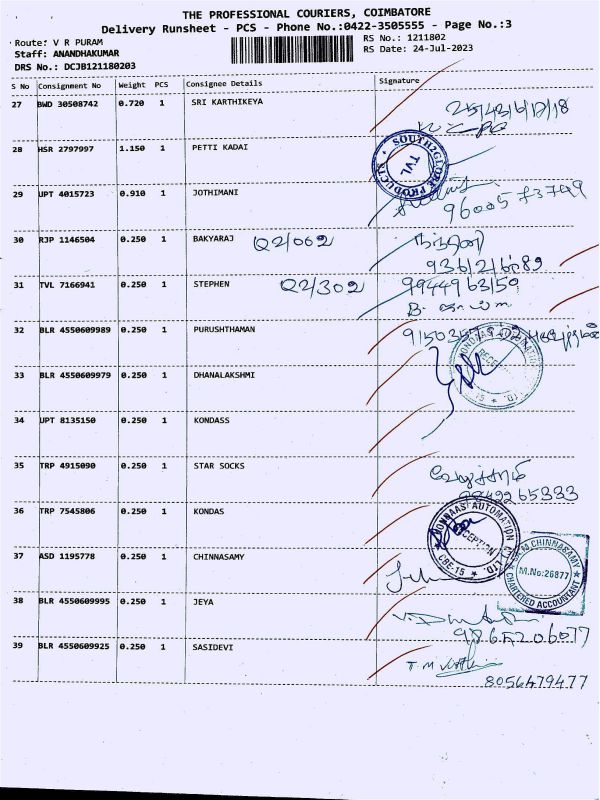 THE PROFESSIONAL COURIERS, COIMBATORE
Delivery Runsheet - PCS - Phone No.:0422-3505555 - Page No.:3
Route: V R PURAM
RS No.: 1211802
Staff: ANANDHAKUMAR
RS Date: 24-Jul-2023
DRS No.: DCJB121180203
S No Consignment No Weight PCS Consignee Details Signature
27 BWD 30508742 0.720 1 SRI KARTHIKEYA
28 HSR 2797997 1.150 1 PETTI KADAI
SOUTH2GLOBE PRODUCTS TVL
29 UPT 4015723 0.910 1 JOTHIMANI
9600573749
30 RJP 1146504 0.250 1 BAKYARAJ Q2/062
31 TVL 7166941 0.250 1 STEPHEN Q2/302 9944963159
32 BLR 4550609989 0.250 1 PURUSHTHAMAN
33 BLR 4550609979 0.250 1 DHANALAKSHMI
34 UPT 8135150 0.250 1 KONDASS
35 TRP 4915090 0.250 1 STAR SOCKS
36 TRP 7545806 0.250 1 KONDAS
AUTOMATION LTD. CBE-15
37 ASD 1195778 0.250 1 CHINNASAMY
M CHINNASAMY
M.No:26877
CHARTERED ACCOUNTANT
38 BLR 4550609995 0.250 1 JEYA
9865206077
39 BLR 4550609925 0.250 1 SASIDEVI
8056479477